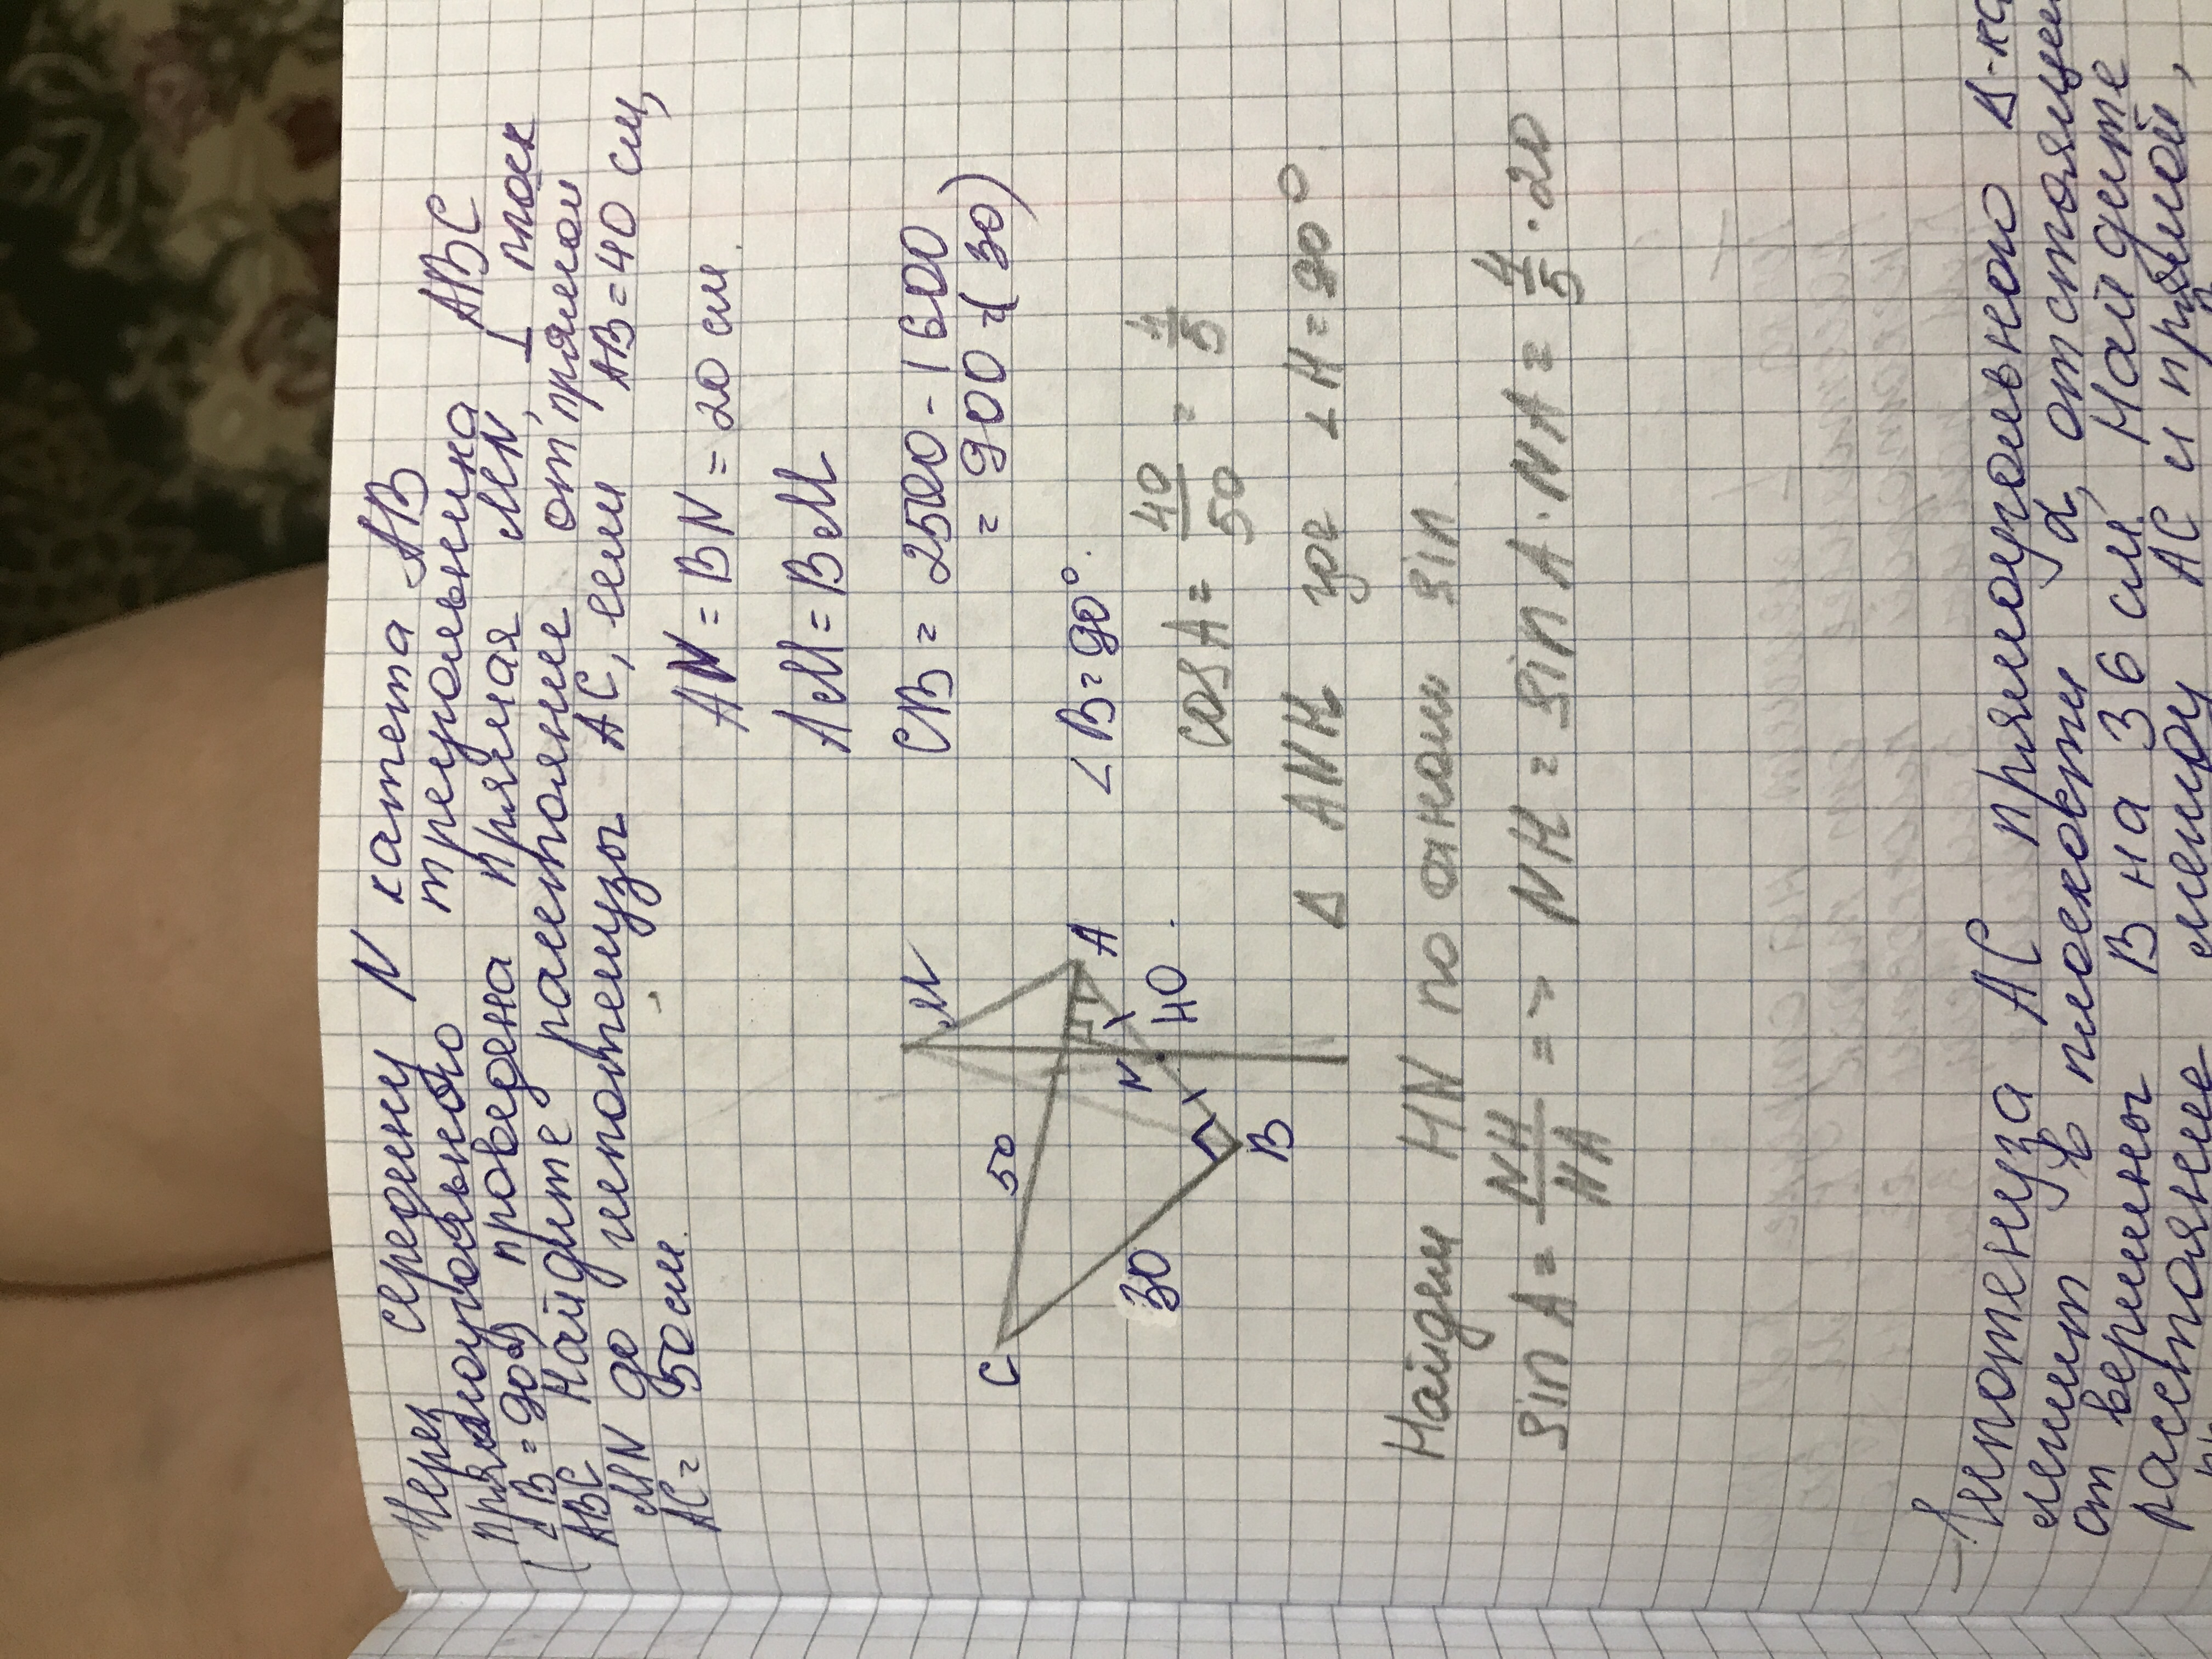 Через середину N катета AB
прямоугольного треугольника ABC
(∠B = 90°) проведена прямая MN, ⊥ плоск
ABC Найдите расстояние от прямой
MN до гипотенузы AC, если AB = 40 см,
AC = 50 см.
AN = BN = 20 см.
AM = BM
CB = 2500 - 1600
= 900 = (30)
∠B = 90°.
cos A = 40/50 = 4/5
M
A
C
50
N
40
B
30
Δ ANH где ∠H = 90°
Найдем HN по sin
sin A = NH/NA => NH = sin A · NA = 4/5 · 20
Гипотенуза AC прямоугольного Δ-ка
лежит в плоскости α, отстоящей
от вершины B на 36 см. Найдите
расстояние между AC и прямой,